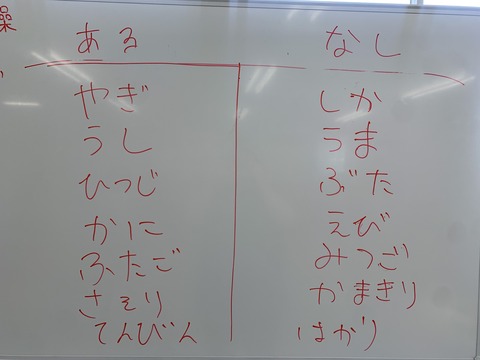 ある なし
やぎ しか
うし うま
ひつじ ぶた
かに えび
ふたご みつご
さそり かまきり
てんびん はかり